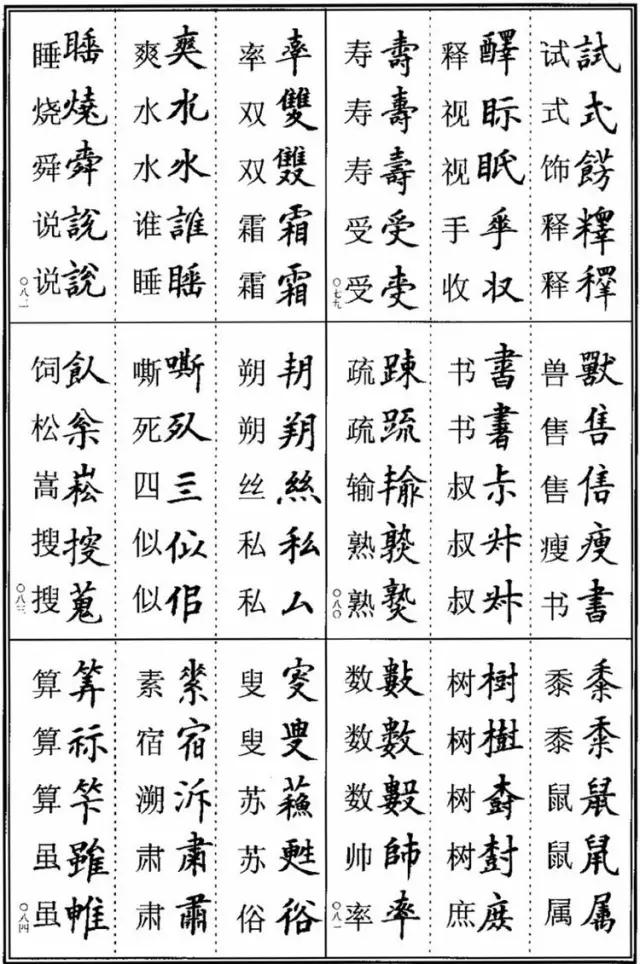 试試
式式
饰餝
释
释
释醳
视眎
视眡
手
收収
寿壽
寿壽
寿壽
受受
受
〇七九
兽獸
售售
售
瘦瘦
书書
书書
书
叔
叔
叔
疏踈
疏
输
熟
熟
〇八〇
黍黍
黍
鼠鼠
鼠
属属
树樹
树樹
树
树尌
庶庶
数
数數
数
帅帥
率率
〇八一
率率
双雙
双雙
霜霜
霜霜
爽爽
水水
水水
谁誰
睡睡
睡睡
烧燒
舜舜
说說
说說
〇八二
朔
朔朔
丝絲
私私
私厶
嘶嘶
死
四亖
似似
似佀
饲飤
松枩
嵩崧
搜
搜蒐
〇八三
叟
叟叟
苏蘓
苏甦
俗俗
素
宿宿
溯泝
肃肅
肃
算筭
算祘
算
虽雖
虽
〇八四